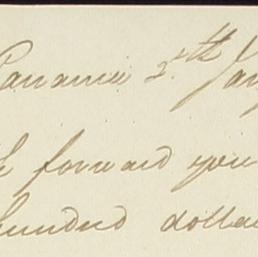 Panama 5th Jan
forward you
hundred dolla